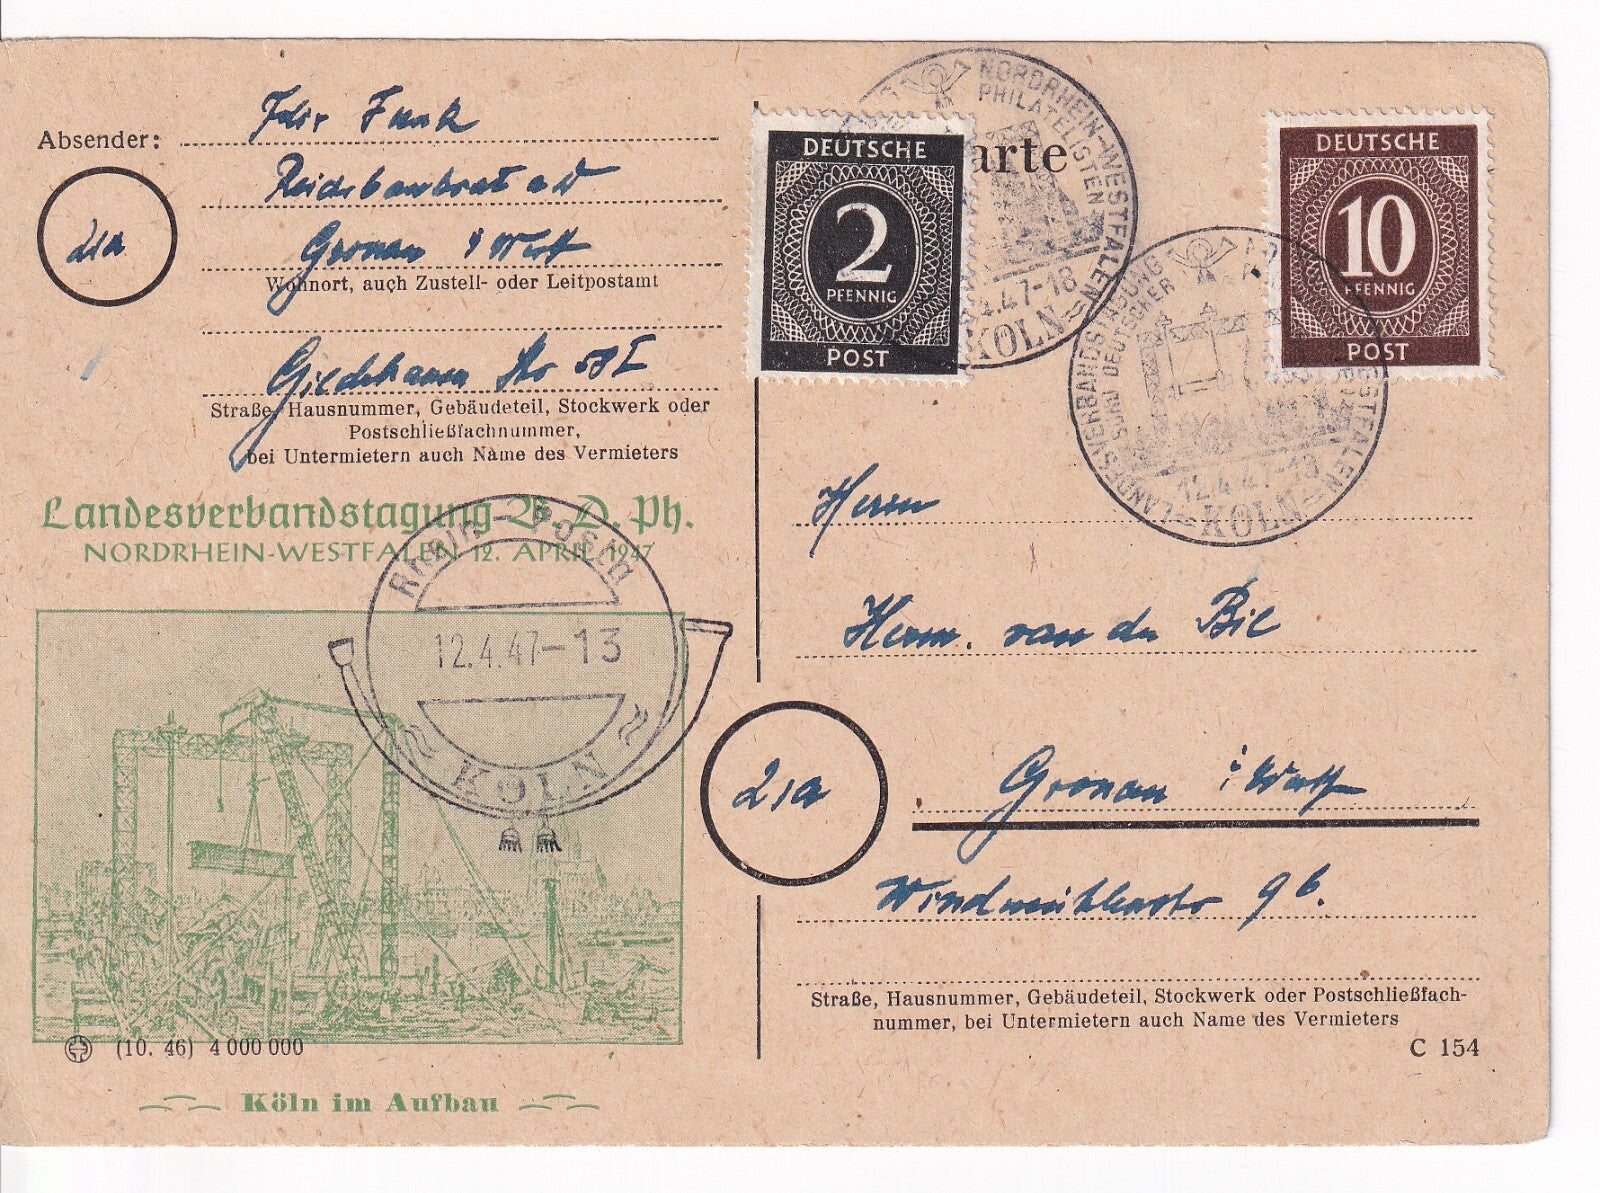 Absender:
Funk
Gronau i Westf
21a
Wohnort, auch Zustell- oder Leitpostamt
Straße, Hausnummer, Gebäudeteil, Stockwerk oder
Postschließfachnummer,
bei Untermietern auch Name des Vermieters
Landesverbandstagung B. D. Ph.
NORDRHEIN-WESTFALEN 12. APRIL 1947
Rhein-Posta
12.4.47-13
KÖLN
(10. 46) 4 000 000
Köln im Aufbau
DEUTSCHE
2
PFENNIG
POST
arte
NORDRHEIN-WESTFALEN
PHILATELISTEN
4.47-18
KÖLN
DEUTSCHE
10
PFENNIG
POST
LANDESVERBANDSTAGUNG
DEUTSCHER
12.4.47-18
KÖLN
Herrn
Herm. van der Bie
21a
Gronau i Westf
9b.
Straße, Hausnummer, Gebäudeteil, Stockwerk oder Postschließfach-
nummer, bei Untermietern auch Name des Vermieters
C 154